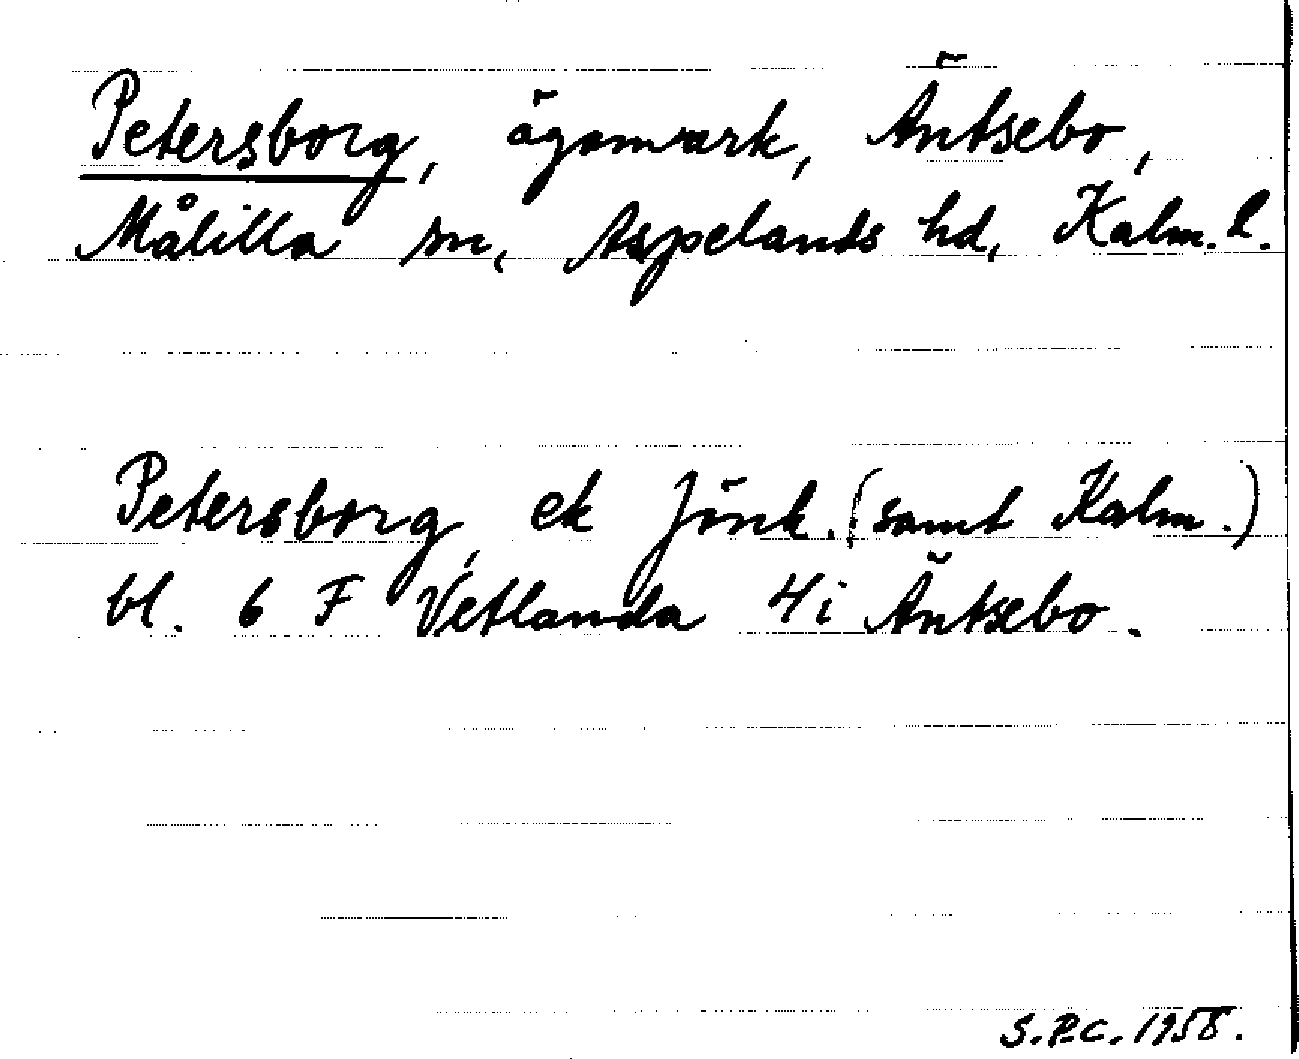 Petersborg, ägomark, Äntsebo,
Målilla sn, Aspelands hd, Kalm. l.
Petersborg, ek Jönk. (samt Kalm.)
bl. 6 F Vetlanda 4i Äntsebo.
S.P.C. 1958.